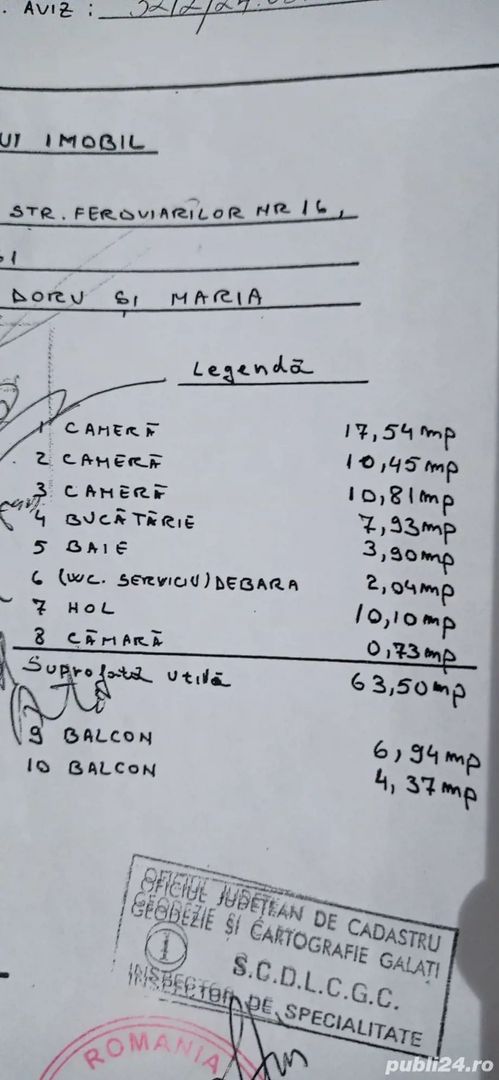 . AVIZ :
UI IMOBIL
STR. FEROVIARILOR NR 16,
DORU ȘI MARIA
Legendă
1 CAMERĂ 17,54 mp
2 CAMERĂ 10,45 mp
3 CAMERĂ 10,81 mp
4 BUCĂTĂRIE 7,93 mp
5 BAIE 3,90 mp
6 (WC. SERVICIU) DEBARA 2,04 mp
7 HOL 10,10 mp
8 CĂMARĂ 0,73 mp
Suprafată utilă 63,50 mp
9 BALCON 6,94 mp
10 BALCON 4,37 mp
OFICIUL JUDEȚEAN DE CADASTRU
GEODEZIE ȘI CARTOGRAFIE GALAȚI
1 S.C.D.L.C.G.C.
INSPECTOR DE SPECIALITATE
ROMANIA
publi24.ro